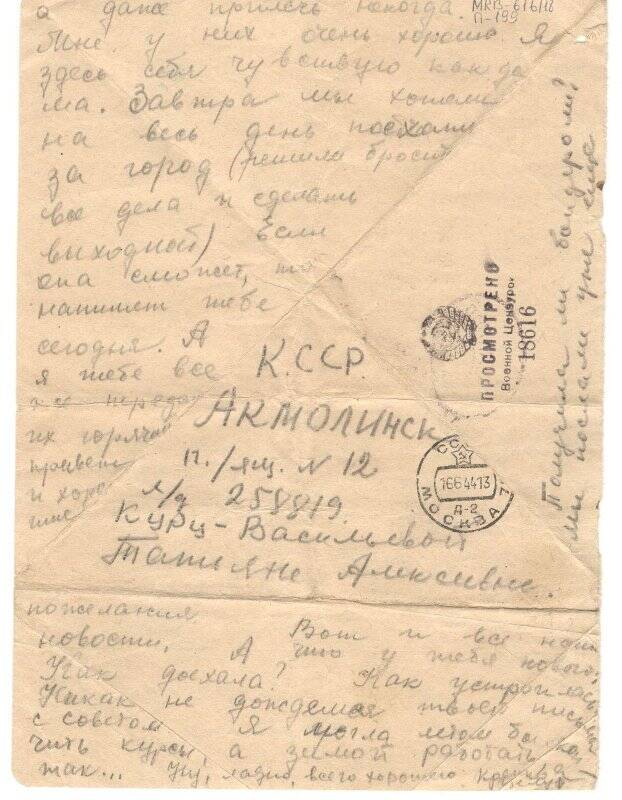 а даже прилечь некогда.
МКВ-616/12
П-199
Мне у них очень хорошо. Я
здесь себя чувствую как до
ма. Завтра мы хотели
на весь день поехать
за город (решила бросить
все дела и сделать
выходной) Если
она сможет, то
напишет тебе
сегодня. А
я тебе все
их горячий
привет
и
К.ССР.
АКМОЛИНСК
п./ящ. N 12
л/д 258819.
Курц-Васильевой
Татьяне Алексивне.
ПРОСМОТРЕНО
Военной Цензурой
18616
1664413
МОСКВА
Д-2
Получила ли бандероли?
мы послали уже еще
пожелания
Вот и все наши
новости. А что у тебя нового?
Как доехала? Как устроилась?
Никак не дождемся твоего письма
с советом Я могла летом бы кон
чить курсы, а зимой работать
так... Ну, ладно, всего хорошего